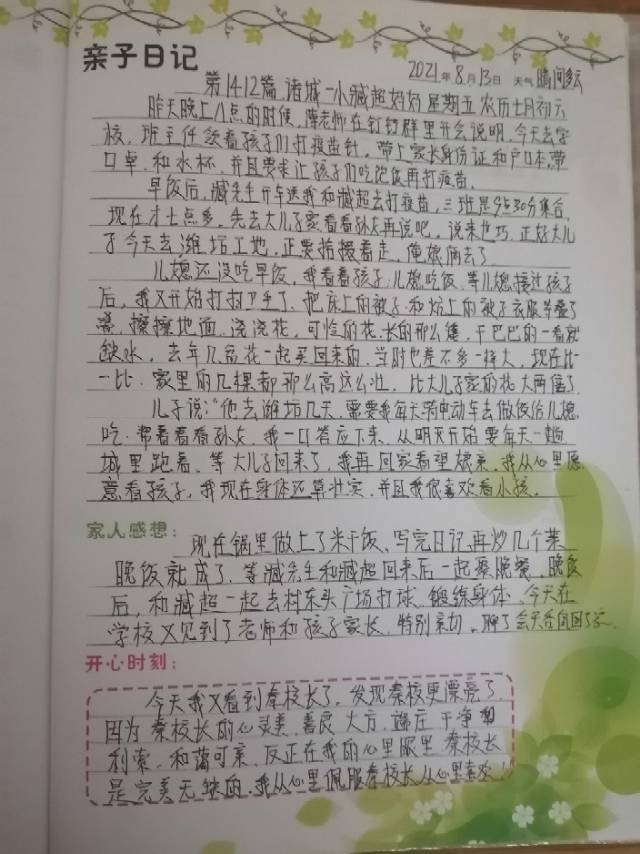 亲子日记
2021年8月13日 天气晴间多云
第1412篇 诸城一小臧超妈妈 星期五 农历七月初六
昨天晚上八点的时候,老师在钉钉群里开会说明,今天去学
校,班主任领着孩子们打疫苗针,带上家长身份证和户口本,带
口罩,和水杯,并且要求让孩子们吃饱饭再打疫苗。
早饭后,臧先生开车送我和臧超去打疫苗,三班是9点30分集合,
现在才七点多,先去大儿子家看看孙女再说吧,说来也巧,正好大儿
子今天去潍坊工地,正要拾掇着走,俺娘病去了
儿媳还没吃早饭,我看着孩子,儿媳吃饭,等儿媳接过孩子
后,我又开始打扫卫生了,把床上的被子和炕上的被子衣服等叠了
叠,擦擦地面,浇浇花,可怜的花,长的那么矮,干巴巴的一看就
缺水,去年几盆花一起买回来的,当时也差不多一样大,现在比
一比,家里的几棵都那么高这么壮,比大儿子家的花大两倍了
儿子说:“他去潍坊几天,需要我每天骑电动车去做饭给儿媳
吃,帮着看看孙女,我一口答应下来,从明天开始要每天一趟
城里跑着,等大儿子回来了,我再回家看望娘亲,我从心里愿
意看孩子,我现在身体还算壮实,并且我很喜欢看小孩。
家人感想:
现在锅里做上了米干饭,写完日记,再炒几个菜
晚饭就成了,等臧先生和臧超回来后一起聚晚餐,晚饭
后,和臧超一起去村东头广场打球,锻练身体,今天在
学校又见到了老师和孩子家长,特别亲切,聊了会天各自回了家
开心时刻:
今天我又看到秦校长了,发现秦校更漂亮了
因为秦校长的心灵美,善良,大方,端庄,干净和
利索,和蔼可亲,反正在我的心里眼里,秦校长
是完美无缺的,我从心里佩服秦校长,从心里喜欢!